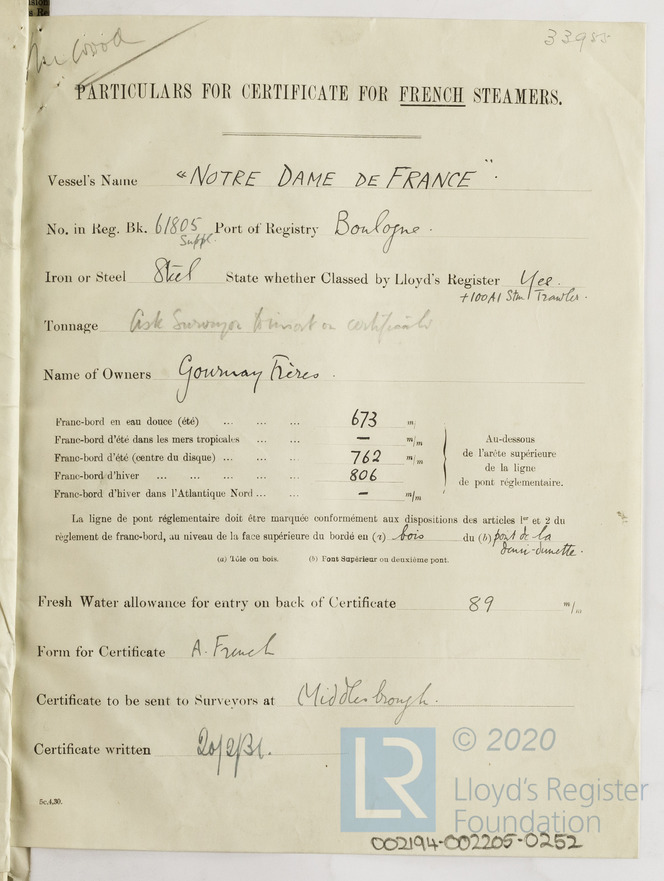 33955
PARTICULARS FOR CERTIFICATE FOR FRENCH STEAMERS.
Vessel's Name "NOTRE DAME DE FRANCE".
No. in Reg. Bk. 61805 Port of Registry Boulogne.
Suppl.
Iron or Steel Steel State whether Classed by Lloyd's Register Yes.
+100A1 Stm Trawler.
Tonnage Ask Surveyor to insert on certificate
Name of Owners Gournay Frères.
Franc-bord en eau douce (été) ... ... ... 673 m/
Franc-bord d'été dans les mers tropicales ... ... — m/m
Franc-bord d'été (centre du disque) ... ... ... 762 m/m
Franc-bord d'hiver ... ... ... ... ... 806
Franc-bord d'hiver dans l'Atlantique Nord ... ... — m/m
Au-dessous
de l'arête supérieure
de la ligne
de pont réglementaire.
La ligne de pont réglementaire doit être marquée conformément aux dispositions des articles 1er et 2 du
règlement de franc-bord, au niveau de la face supérieure du bordé en (a) bois du (b) pont de la
demi-dunette.
(a) Tôle ou bois. (b) Pont Supérieur ou deuxième pont.
Fresh Water allowance for entry on back of Certificate 89 m/m
Form for Certificate A. French
Certificate to be sent to Surveyors at Middlesbrough.
Certificate written 20/2/31.
5c,4,30.
LR
© 2020
Lloyd's Register
Foundation
002194-002205-0252